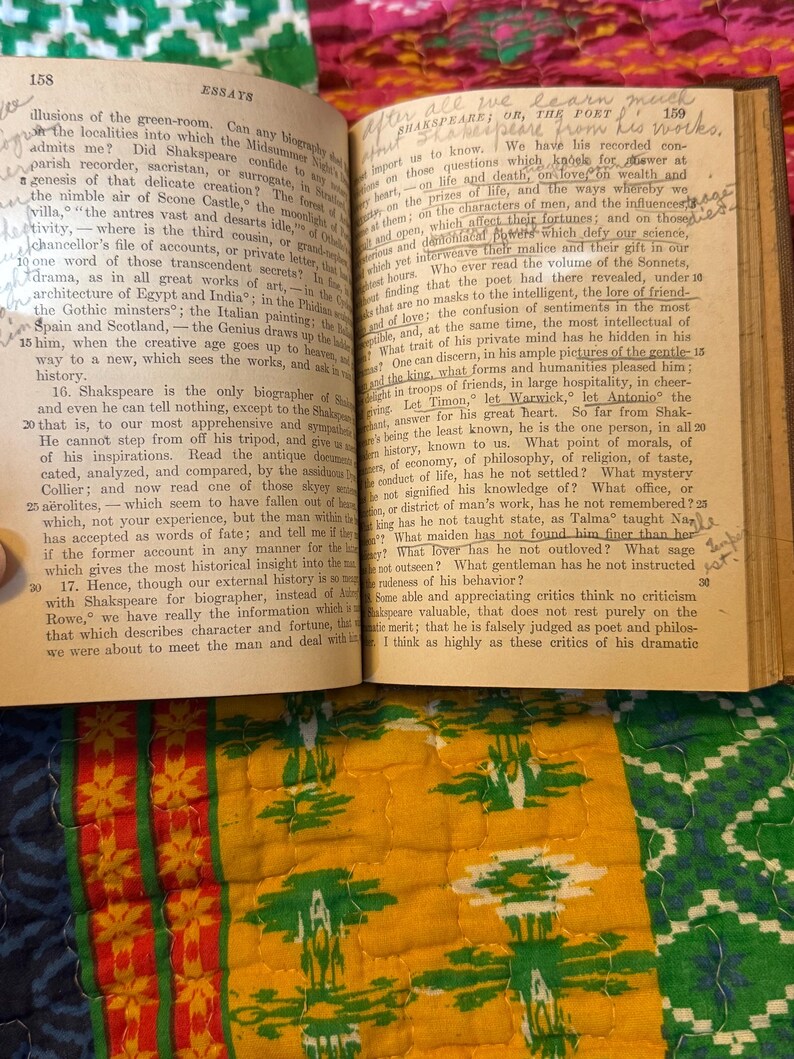 158
ESSAYS
illusions of the green-room. Can any biography shed
on the localities into which the Midsummer Night's
admits me? Did Shakspeare confide to any
parish recorder, sacristan, or surrogate, in Stratford,
5 genesis of that delicate creation? The forest of
the nimble air of Scone Castle,° the moonlight of
villa,° "the antres vast and desarts idle,"° of Othello's
tivity, — where is the third cousin, or grand-nephew,
chancellor's file of accounts, or private letter, that has
10 one word of those transcendent secrets? In fine,
drama, as in all great works of art, — in the
architecture of Egypt and India°; in the Phidian
the Gothic minsters°; the Italian painting; the
Spain and Scotland, — the Genius draws up the ladder
15 him, when the creative age goes up to heaven, and
way to a new, which sees the works, and ask in vain
history.
16. Shakspeare is the only biographer of
and even he can tell nothing, except to the Shakspeare
20 that is, to our most apprehensive and sympathetic
He cannot step from off his tripod, and give us
of his inspirations. Read the antique documents
cated, analyzed, and compared, by the assiduous
Collier; and now read one of those skyey
25 aërolites, — which seem to have fallen out of heaven,
which, not your experience, but the man within the
has accepted as words of fate; and tell me if they
if the former account in any manner for the
which gives the most historical insight into the man.
30 17. Hence, though our external history is so
with Shakspeare for biographer, instead of Aubrey
Rowe,° we have really the information which is
that which describes character and fortune, that
we were about to meet the man and deal with him,
after all we learn much
SHAKSPEARE; OR, THE POET 159
about Shakespeare from his works.
import us to know. We have his recorded con-
on those questions which knock for answer at
heart, — on life and death, on love, on wealth and
on the prizes of life, and the ways whereby we
at them; on the characters of men, and the influences,
and open, which affect their fortunes; and on those
and demoniacal powers which defy our science,
which yet interweave their malice and their gift in our
hours. Who ever read the volume of the Sonnets,
finding that the poet had there revealed, under 10
that are no masks to the intelligent, the lore of friend-
and of love; the confusion of sentiments in the most
and, at the same time, the most intellectual of
What trait of his private mind has he hidden in his
One can discern, in his ample pictures of the gentle- 15
and the king, what forms and humanities pleased him;
delight in troops of friends, in large hospitality, in cheer-
giving. Let Timon,° let Warwick,° let Antonio° the
answer for his great heart. So far from Shak-
being the least known, he is the one person, in all 20
history, known to us. What point of morals, of
of economy, of philosophy, of religion, of taste,
the conduct of life, has he not settled? What mystery
he not signified his knowledge of? What office, or
or district of man's work, has he not remembered? 25
king has he not taught state, as Talma° taught Na-
What maiden has not found him finer than her
What lover has he not outloved? What sage
he not outseen? What gentleman has he not instructed
the rudeness of his behavior? 30
Some able and appreciating critics think no criticism
Shakspeare valuable, that does not rest purely on the
merit; that he is falsely judged as poet and philos-
I think as highly as these critics of his dramatic